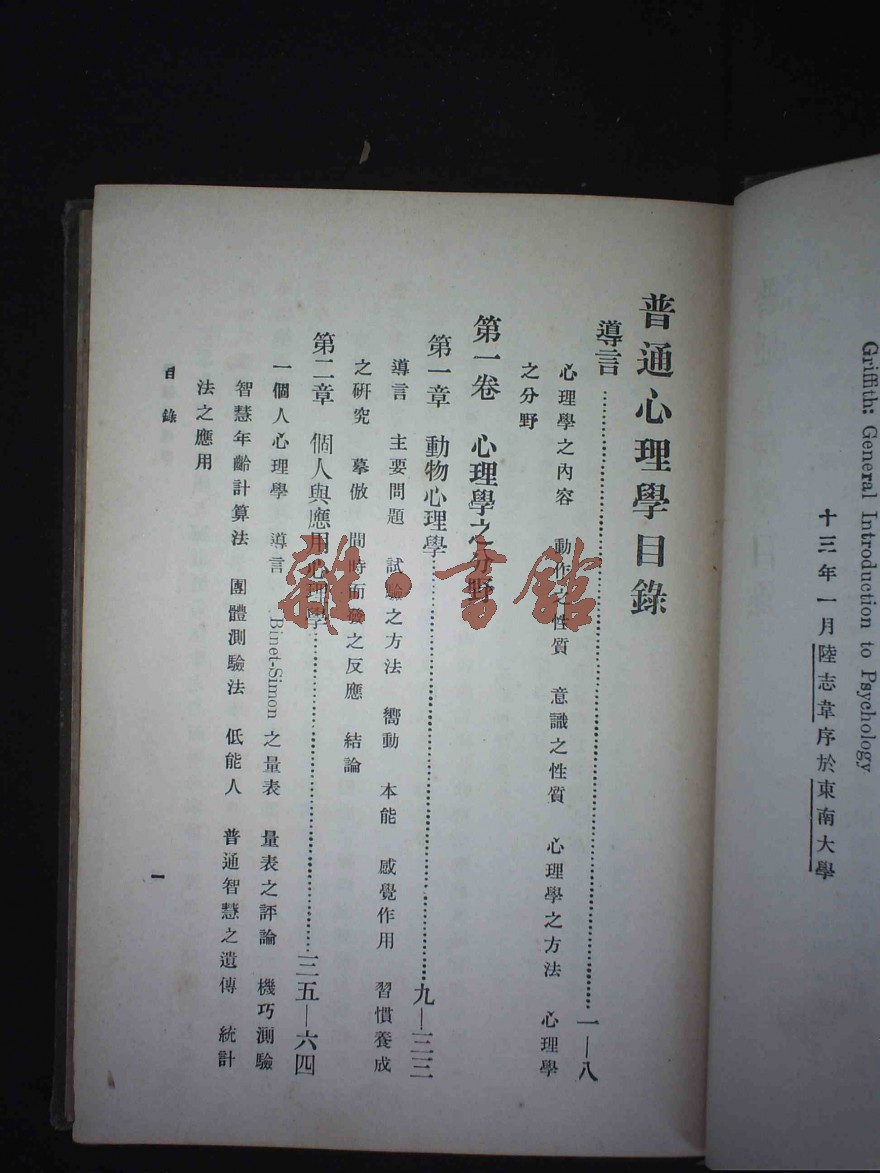 Griffith: General Introduction to Psychology
十三年一月陸志韋序於東南大學
普通心理學目錄
導言……一—八
心理學之內容　動作之性質　意識之性質　心理學之方法　心理學
之分野
第一卷　心理學之分野
第一章　動物心理學……九—三三
導言　主要問題　試驗之方法　嚮動　本能　感覺作用　習慣養成
之研究　摹倣　間時而發之反應　結論
第二章　個人與應用心理學……三五—六四
一個人心理學　導言　Binet-Simon 之量表　量表之評論　機巧測驗
智慧年齡計算法　團體測驗法　低能人　普通智慧之遺傳　統計
法之應用
目錄
一
雜·書館